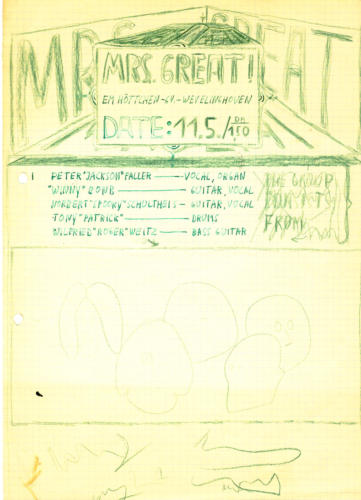 MRS. GREAT
MRS. GREAT!
EM HÖTTCHEN -GV.- WEVELINGHOVEN
DATE: 11.5./DM 1,50
PETER "JACKSON" FALLER — VOCAL, ORGAN
"WINNY" BONB — GUITAR, VOCAL
NORBERT "SPOOKY" SCHULTHEIS — GUITAR, VOCAL
TONY "PATRICK" — DRUMS
WILFRIED "ROGER" WEITZ — BASS GUITAR
THE GROUP
FROM